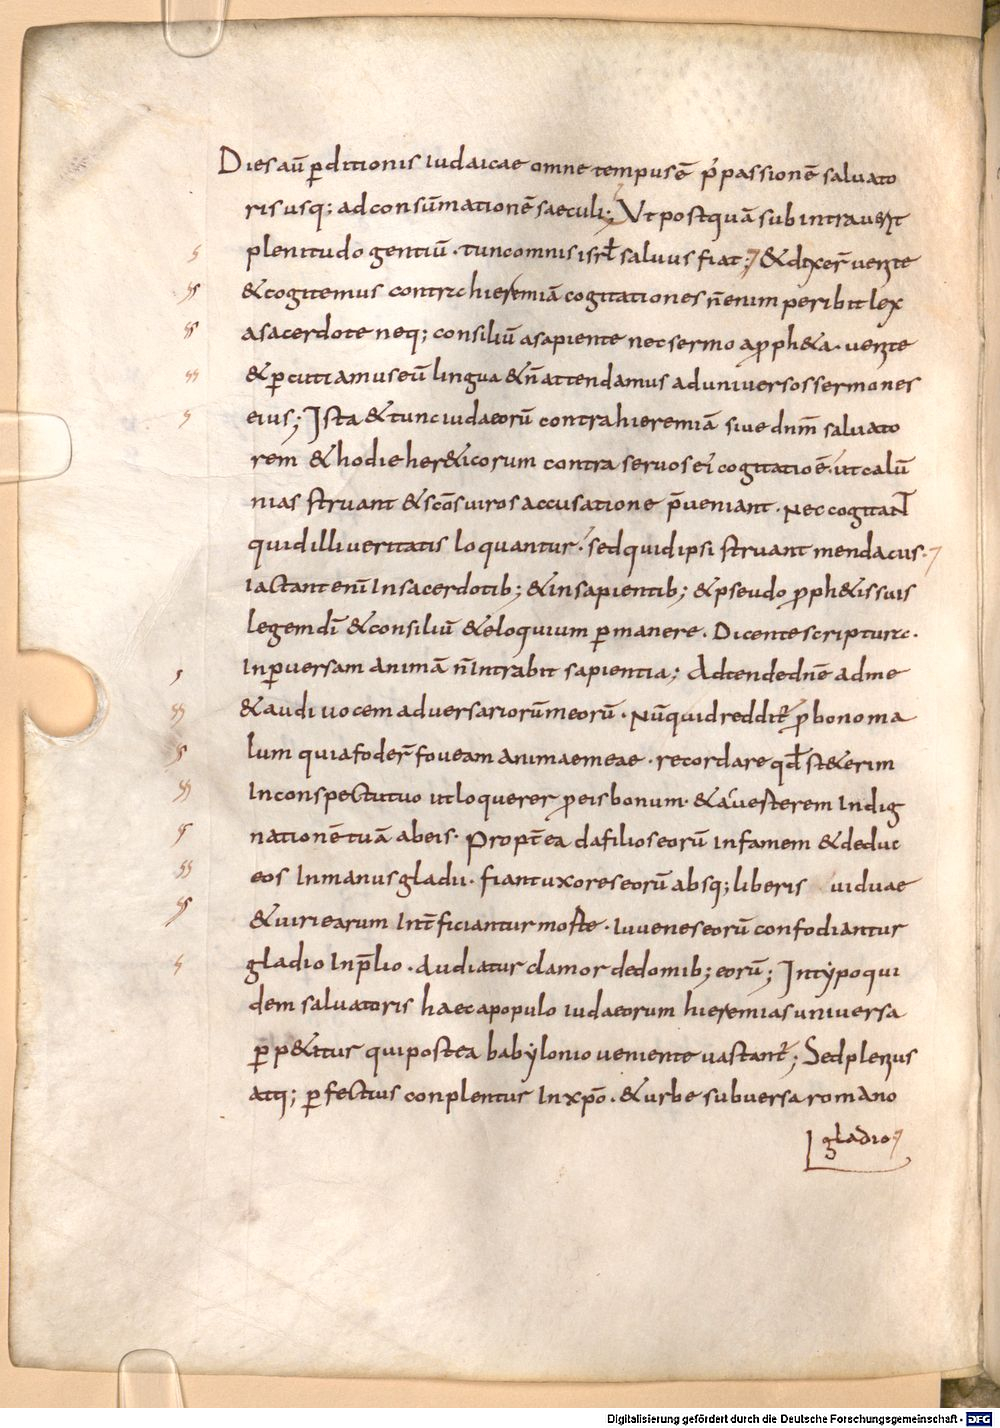 Dies aū ꝑditionis iudaicae omne tempus ē p̄ passionē saluato
ris usq; ad consūmationē saeculi; Ut postquā subintrauerit
plenitudo gentiū · tunc omnis isrł saluus fiat; & dixer̄ uenite
& cogitemus contra hieremiā cogitationes n̄ enim peribit lex
a sacerdote neq; consiliū a sapiente nec sermo a ꝓph&a · uenite
& ꝑcutiamus eū lingua & n̄ attendamus ad uniuersos sermones
eius; Ista & tunc iudaeorū contra hieremiā siue dnm̄ saluato
rem & hodie her&icorum contra seruos ei cogitatio ē · ut calū
nias struant & sc̄os uiros accusatione p̄ueniant · Nec cogitaNT
quid illi ueritatis loquantur · sed quid ipsi struant mendacii ·
Iactant eni̅ In sacerdotib; & in sapientib; & pseudo ꝓph&is suis
legem di̅ & consiliū & eloquium ꝑmanere · Dicente scriptura ·
In ꝑuersam animā n̄ Intrabit sapientia; Adtende dn̄e ad me
& audi uocem aduersariorū meorū · Nūquid reddit̄ ꝓ bono ma
lum quia foder̄ foueam animae meae · recordare qđ st&erim
In conspectu tuo ut loquerer ꝓ eis bonum · & auesterem Indig
nationē tuā ab eis · Propt̄ea da filios eorū In famem & deduc
eos In manus gladii · fiant uxores eorū absq; liberis uiduae
& uiri earum Int̄ficiantur morte · Iuuenes eorū confodiantur
gladio In p̄lio · Audiatur clamor de domib; eorū; In typo qui
dem saluatoris haec a populo iudaeorum hieremias uniuersa
ꝑp&itur qui postea babylonio ueniente uastant̄; Sed plenius
atq; ꝑfectius conplentur In xp̄o · & urbe subuersa romano
gladio
Digitalisierung gefördert durch die Deutsche Forschungsgemeinschaft - DFG